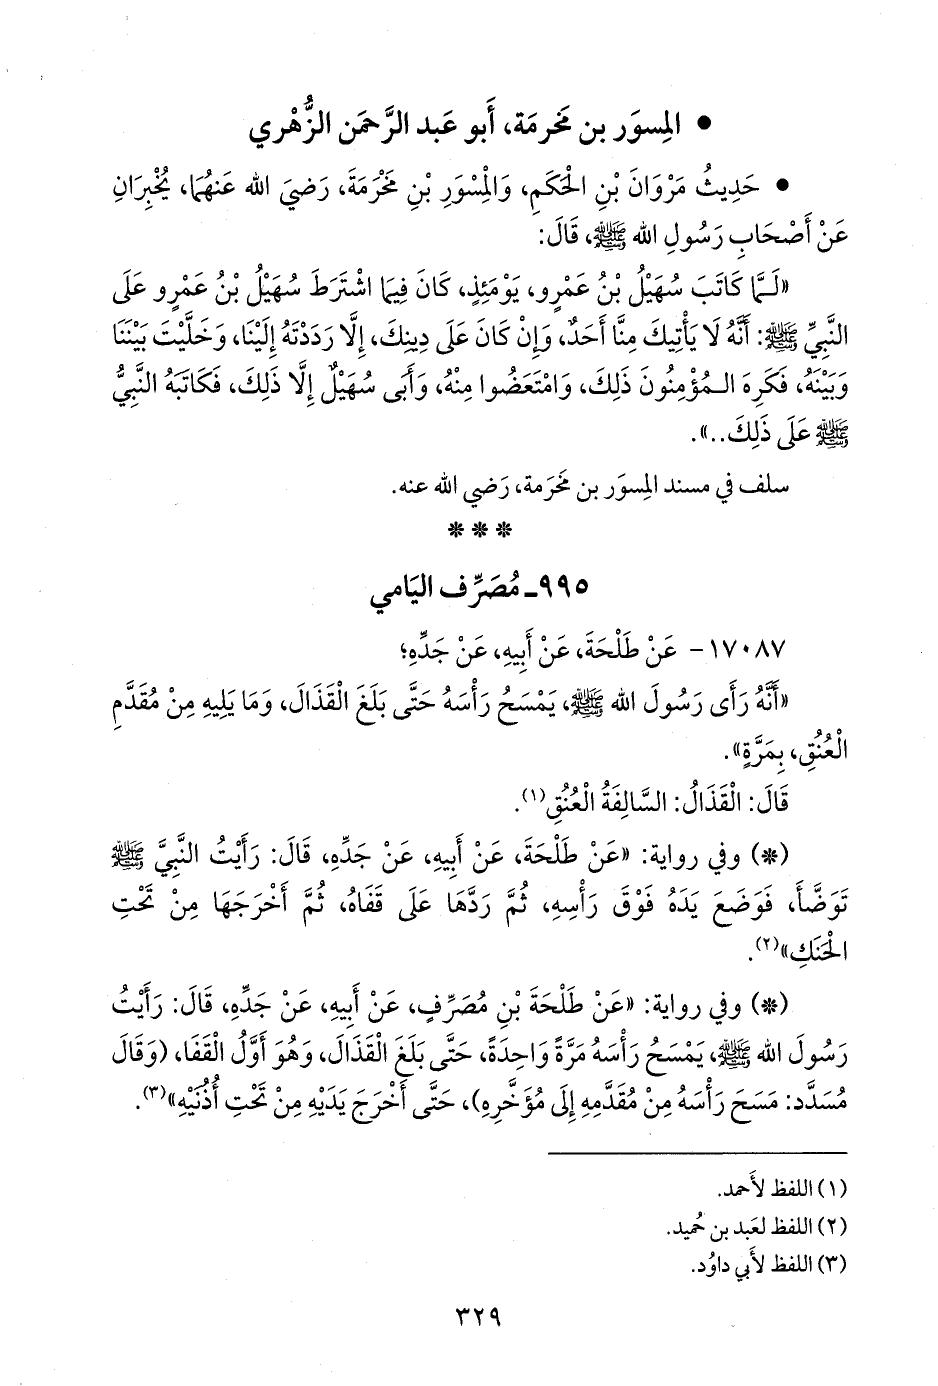 • المِسوَر بن مَخرمَة، أَبو عَبد الرَّحمَن الزُّهْري
• حَدِيثُ مَرْوَانَ بْنِ الْحَكَمِ، وَالْمِسْوَرِ بْنِ مَخْرَمَةَ، رَضِيَ الله عَنهُمَا، يُخْبِرَانِ
عَنْ أَصْحَابِ رَسُولِ الله ﷺ، قَالَ:
«لَـمَّا كَاتَبَ سُهَيْلُ بْنُ عَمْرٍو، يَوْمَئِذٍ، كَانَ فِيمَا اشْتَرَطَ سُهَيْلُ بْنُ عَمْرٍو عَلَى
النَّبِيِّ ﷺ: أَنَّهُ لَا يَأْتِيكَ مِنَّا أَحَدٌ، وَإِنْ كَانَ عَلَى دِينِكَ، إِلَّا رَدَدْتَهُ إِلَيْنَا، وَخَلَّيْتَ بَيْنَنَا
وَبَيْنَهُ، فَكَرِهَ الـمُؤْمِنُونَ ذَلِكَ، وَامْتَعَضُوا مِنْهُ، وَأَبَى سُهَيْلٌ إِلَّا ذَلِكَ، فَكَاتَبَهُ النَّبِيُّ
ﷺ عَلَى ذَلِكَ..».
سلف في مسند المِسوَر بن مَخَرَمة، رَضي الله عنه.
***
٩٩٥ـ مُصَرِّف اليَامي
١٧٠٨٧- عَنْ طَلْحَةَ، عَنْ أَبِيهِ، عَنْ جَدِّهِ؛
«أَنَّهُ رَأَى رَسُولَ الله ﷺ، يَمْسَحُ رَأْسَهُ حَتَّى بَلَغَ الْقَذَالَ، وَمَا يَلِيهِ مِنْ مُقَدَّمِ
الْعُنُقِ، بِمَرَّةٍ».
قَالَ: الْقَذَالُ: السَّالِفَةُ الْعُنُقِ(١).
(*) وفي رواية: «عَنْ طَلْحَةَ، عَنْ أَبِيهِ، عَنْ جَدِّهِ، قَالَ: رَأَيْتُ النَّبِيَّ ﷺ
تَوَضَّأَ، فَوَضَعَ يَدَهُ فَوْقَ رَأْسِهِ، ثُمَّ رَدَّهَا عَلَى قَفَاهُ، ثُمَّ أَخْرَجَهَا مِنْ تَحْتِ
الْحَنَكِ»(٢).
(*) وفي رواية: «عَنْ طَلْحَةَ بْنِ مُصَرِّفٍ، عَنْ أَبِيهِ، عَنْ جَدِّهِ، قَالَ: رَأَيْتُ
رَسُولَ الله ﷺ، يَمْسَحُ رَأْسَهُ مَرَّةً وَاحِدَةً، حَتَّى بَلَغَ الْقَذَالَ، وَهُوَ أَوَّلُ الْقَفَا، (وَقَالَ
مُسَدَّد: مَسَحَ رَأْسَهُ مِنْ مُقَدَّمِهِ إِلَى مُؤَخَّرِهِ)، حَتَّى أَخْرَجَ يَدَيْهِ مِنْ تَحْتِ أُذُنَيْهِ»(٣).
(١) اللفظ لأَحمد.
(٢) اللفظ لعَبد بن حُميد.
(٣) اللفظ لأَبي داوُد.
٣٢٩